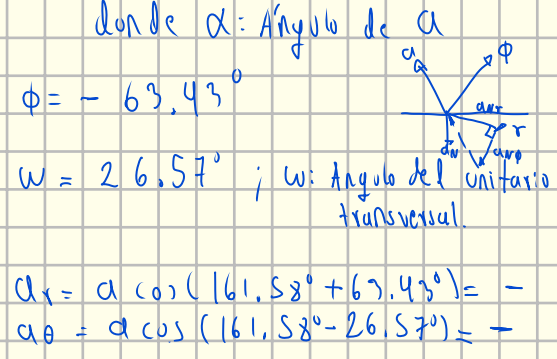 donde α: Ángulo de a
a ϕ
ϕ = - 63,43°
a_Nr
r
a_N a_Nϕ
w = 26.57° ; w: Angulo del unitario
transversal.
a_r = a cos(161.58° + 63.43°) = -
a_θ = a cos(161.58° - 26.57°) = -